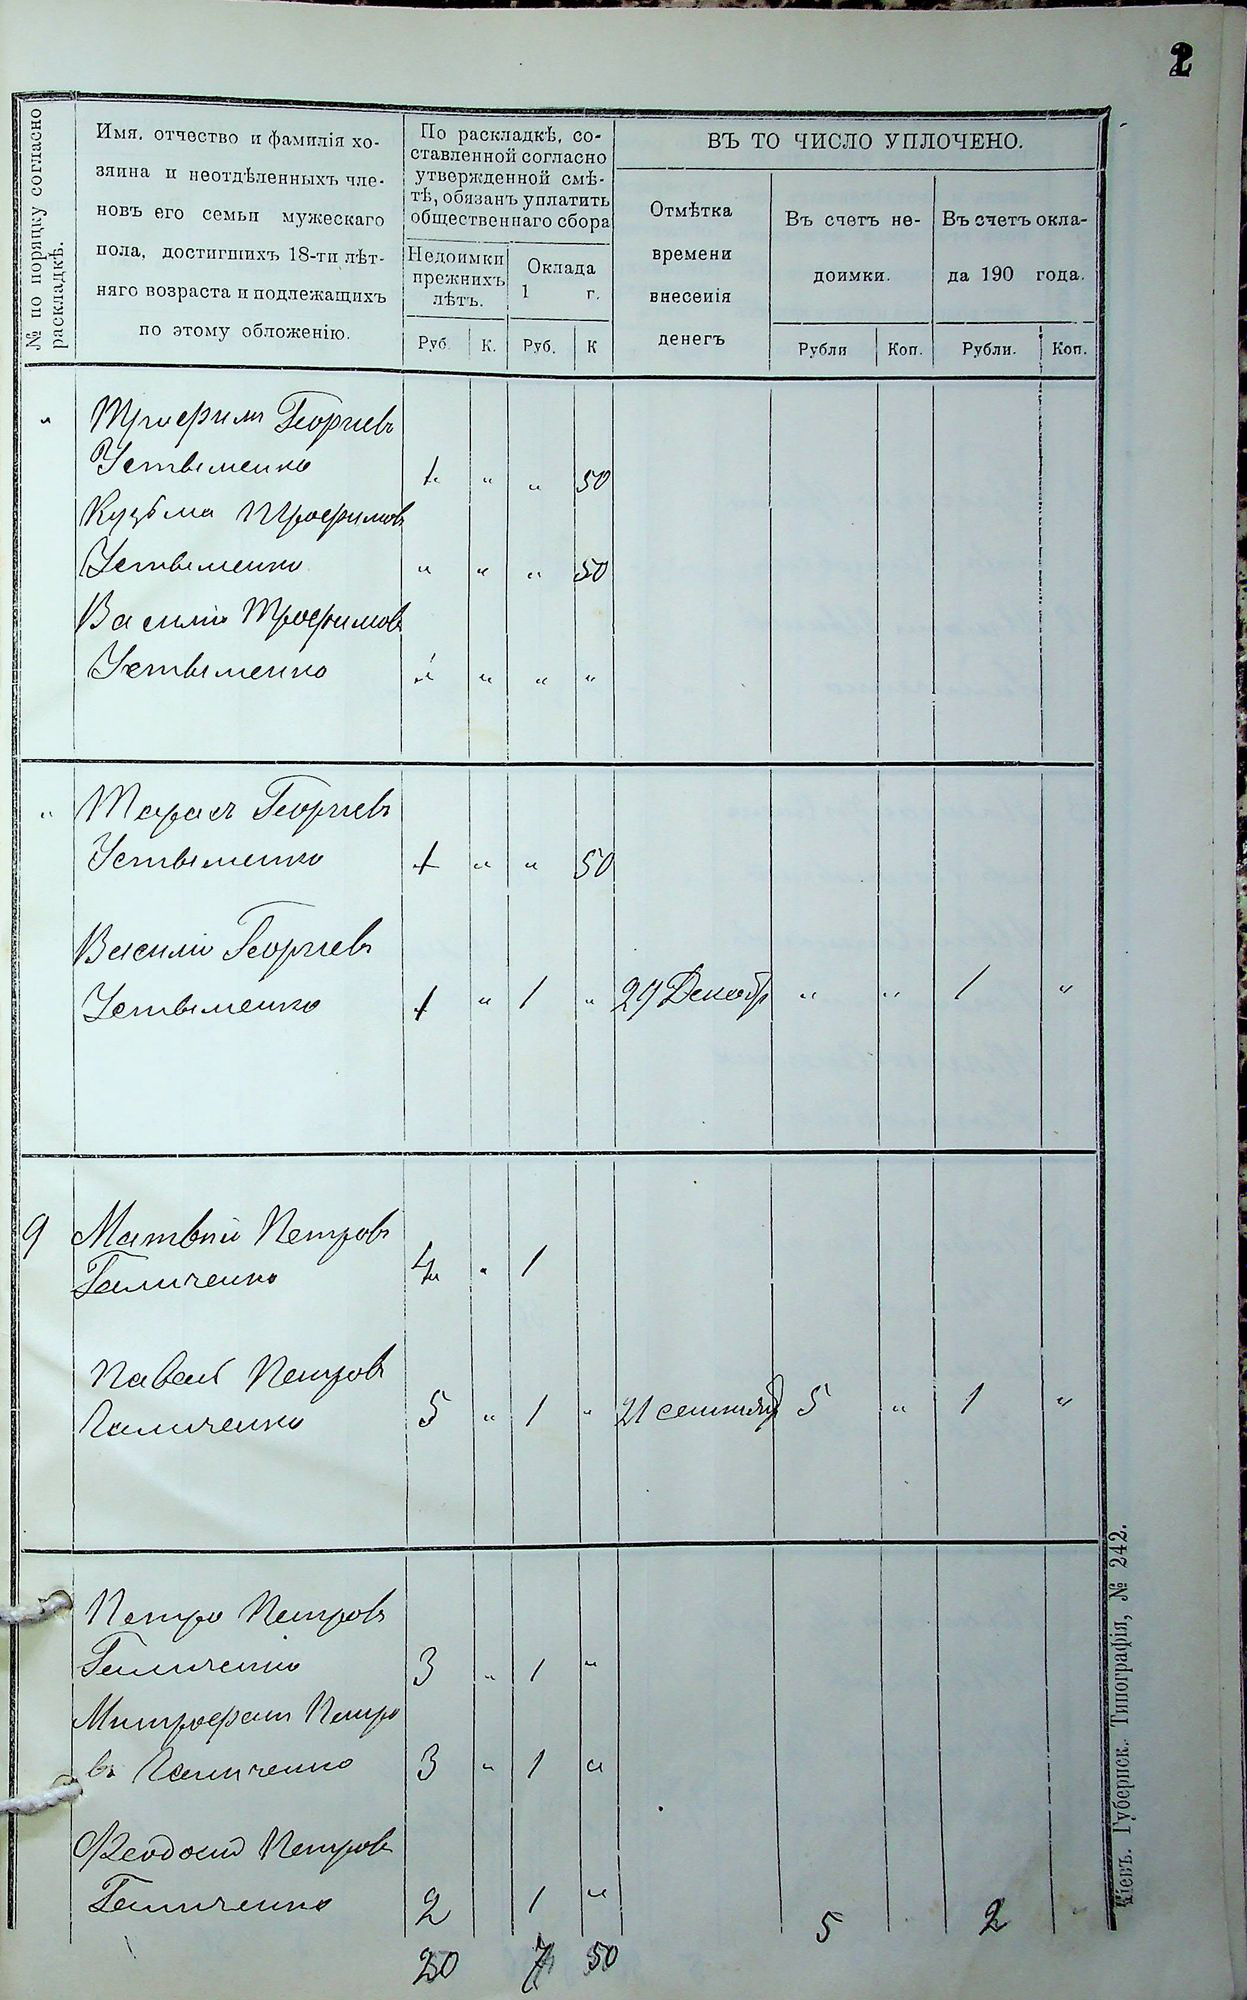 2
№ по поряцку согласно
раскладкѣ.
Имя, отчество и фамилія хо-
зяина и неотдѣленныхъ чле-
новъ его семьи мужескаго
пола, достигшихъ 18-ти лѣт-
няго возраста и подлежащихъ
по этому обложенію.
По раскладкѣ, со-
ставленной согласно
утвержденной смѣ-
тѣ, обязанъ уплатить
общественнаго сбора
Недоимки
прежнихъ
лѣтъ.
Оклада
1 г.
ВЪ ТО ЧИСЛО УПЛОЧЕНО.
Отмѣтка
времени
внесенія
денегъ
Въ счетъ не-
доимки.
Въ счетъ окла-
да 190 года.
Руб. К. Руб. К Рубли Коп. Рубли. Коп.
" Трофимъ Георгіевъ
Устыменко 1 " " 50
Кузьма Трофимовъ
Устыменко " " " 50
Василій Трофимовъ
Устыменко " " " "
" Тарасъ Георгіевъ
Устыменко 1 " " 50
Василій Георгіевъ
Устыменко 1 " 1 " 29 Декабр " " 1 "
9 Матвѣй Петровъ
Галиченко 4 " 1
Павелъ Петровъ
Галиченко 5 " 1 " 21 сентябр 5 " 1 "
Петро Петровъ
Галиченко 3 " 1 "
Митрофанъ Петро
въ Галиченко 3 " 1 "
Феодосій Петровъ
Галиченко 2 1 "
5 2
20 7 50
Кіевъ. Губернск. Типографія, № 242.